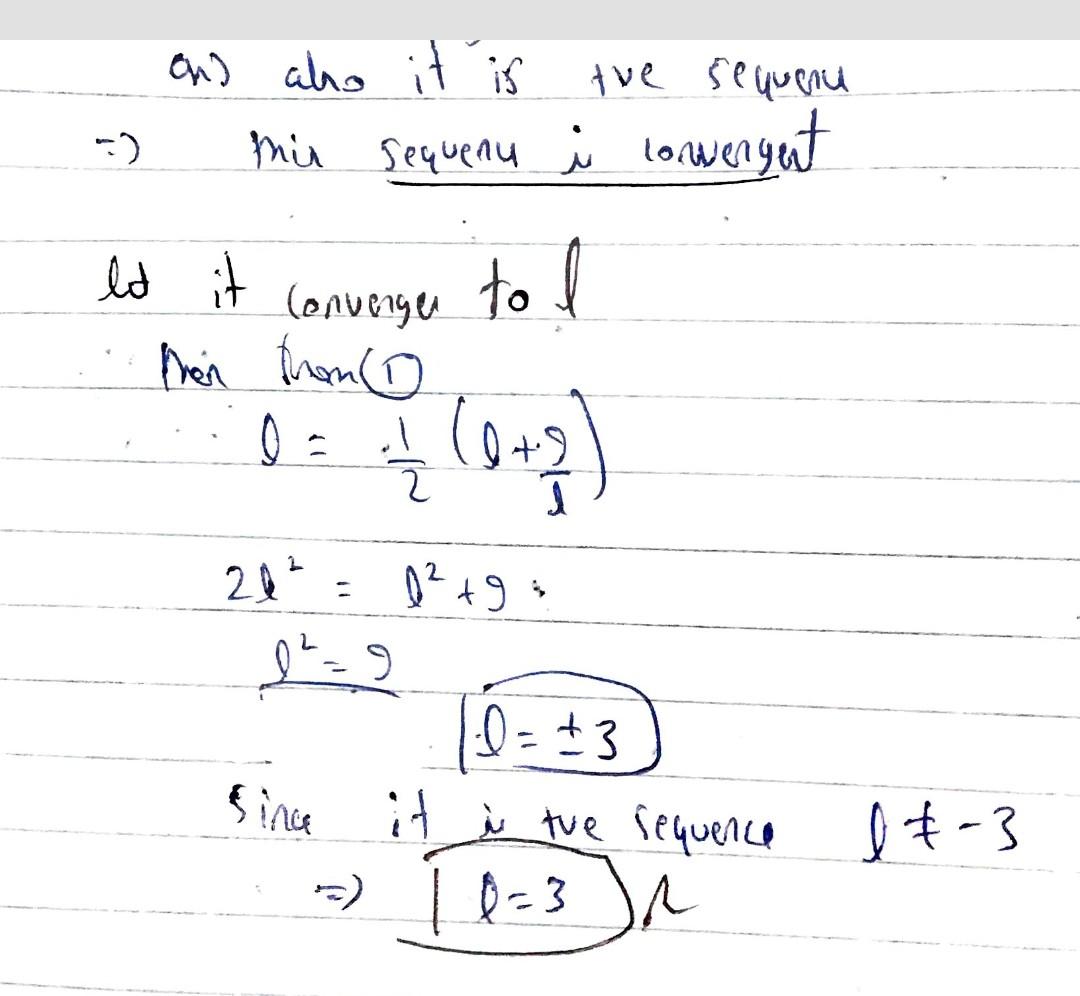 also it is +ve sequence
=) this sequence is convergent
let it converges to l
then from (1)
l = 1/2 (l + 9/l)
2l² = l² + 9
l² = 9
l = ± 3
Since it is +ve sequence l ≠ -3
=) l = 3